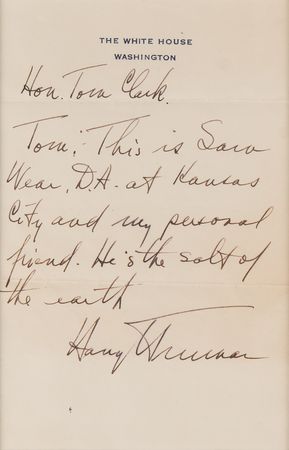 THE WHITE HOUSE
WASHINGTON
Hon. Tom Clark.
Tom: This is Sam
Wear, D.A. at Kansas
City and my personal
friend. He is the salt of
the earth
Harry Truman